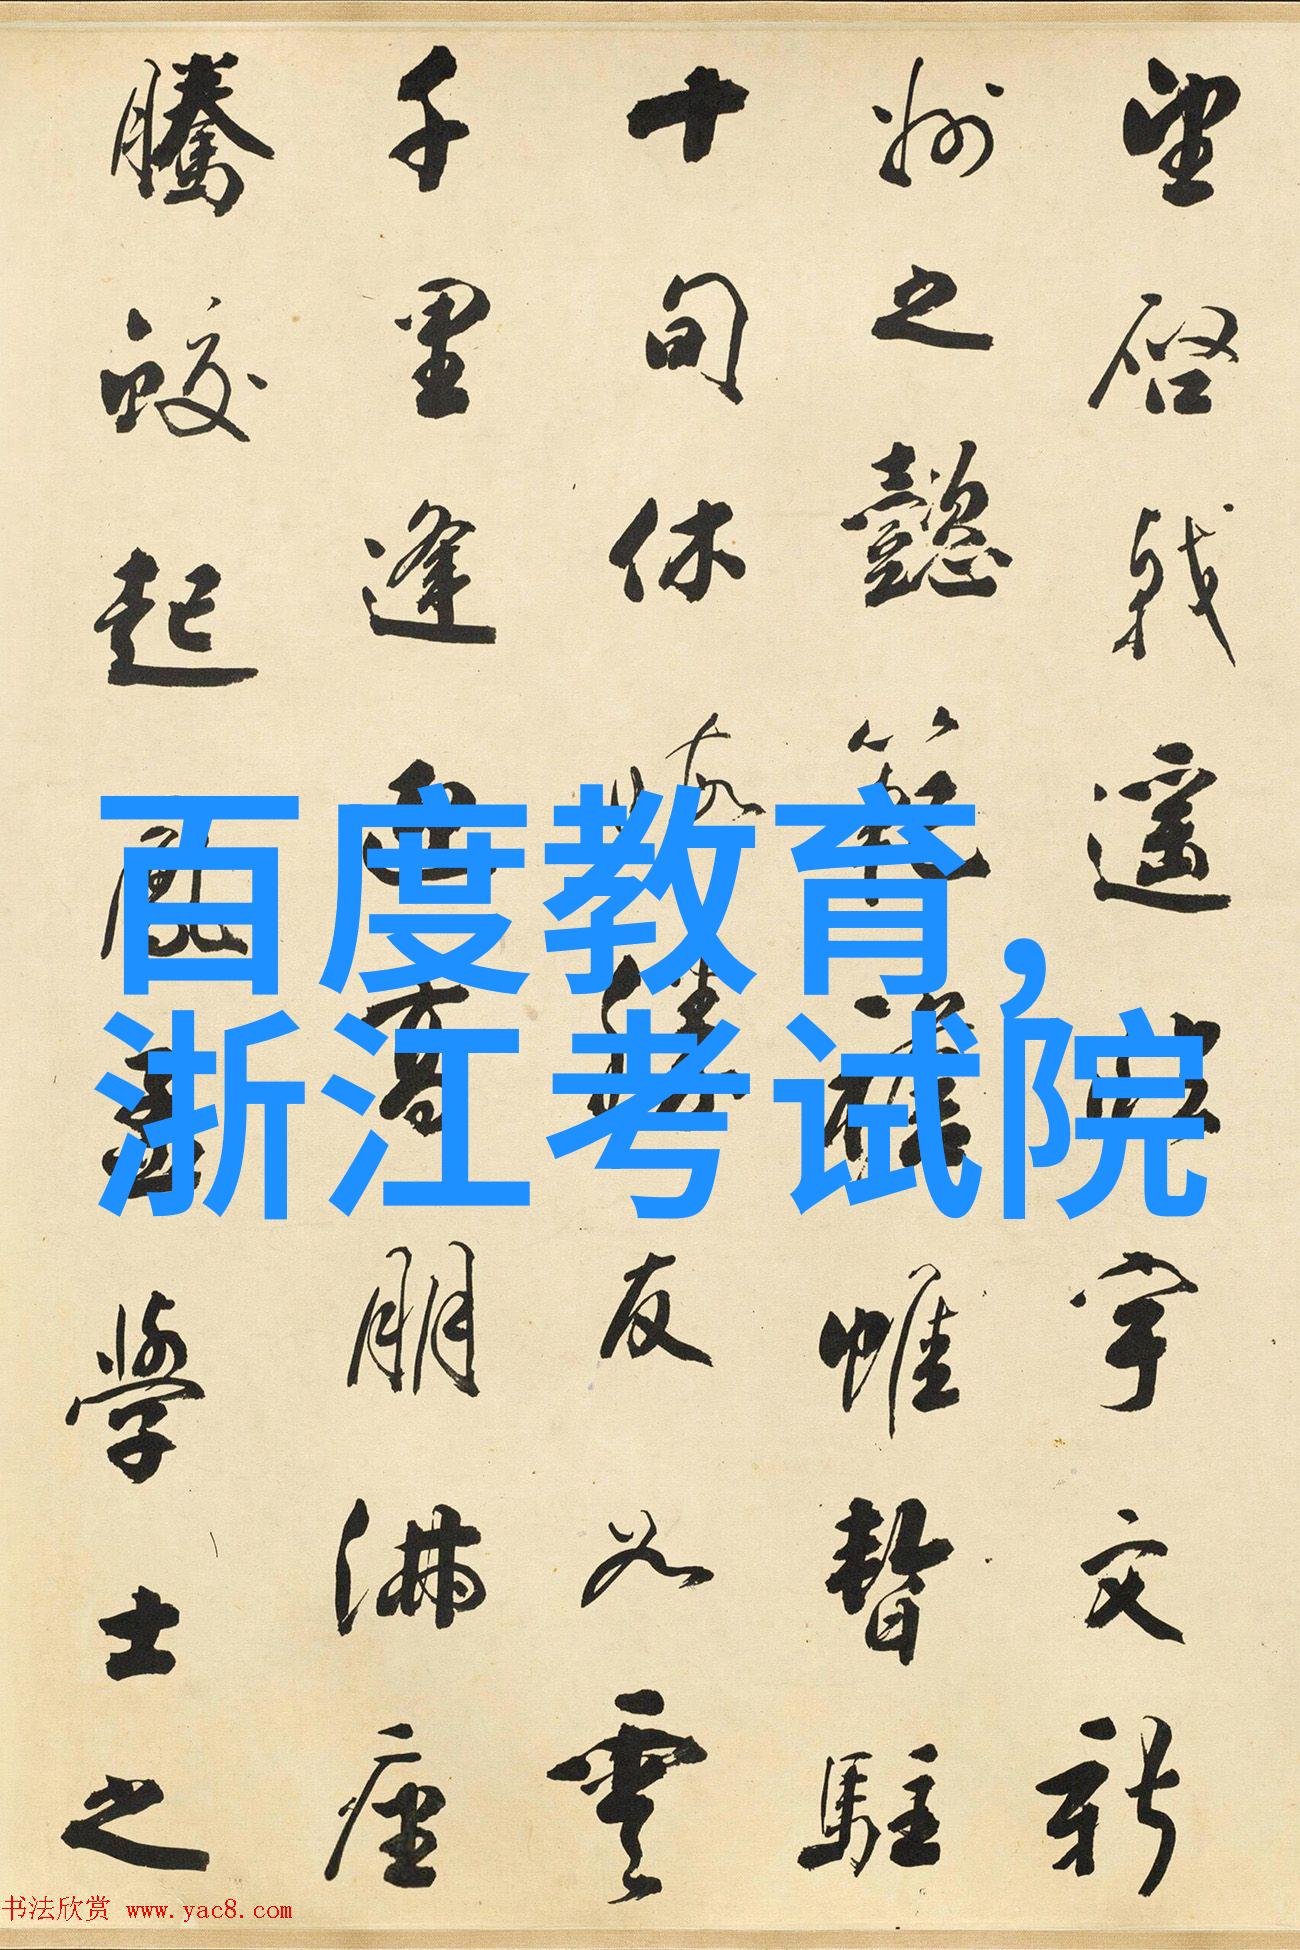 望啓戟遥臨宇文新
州之懿範襜帷暫駐
十旬休暇勝友如雲
千里逢迎高朋滿座
騰蛟起鳳孟學士之
百度教育,
浙江考试院
书法欣赏 www.yac8.com